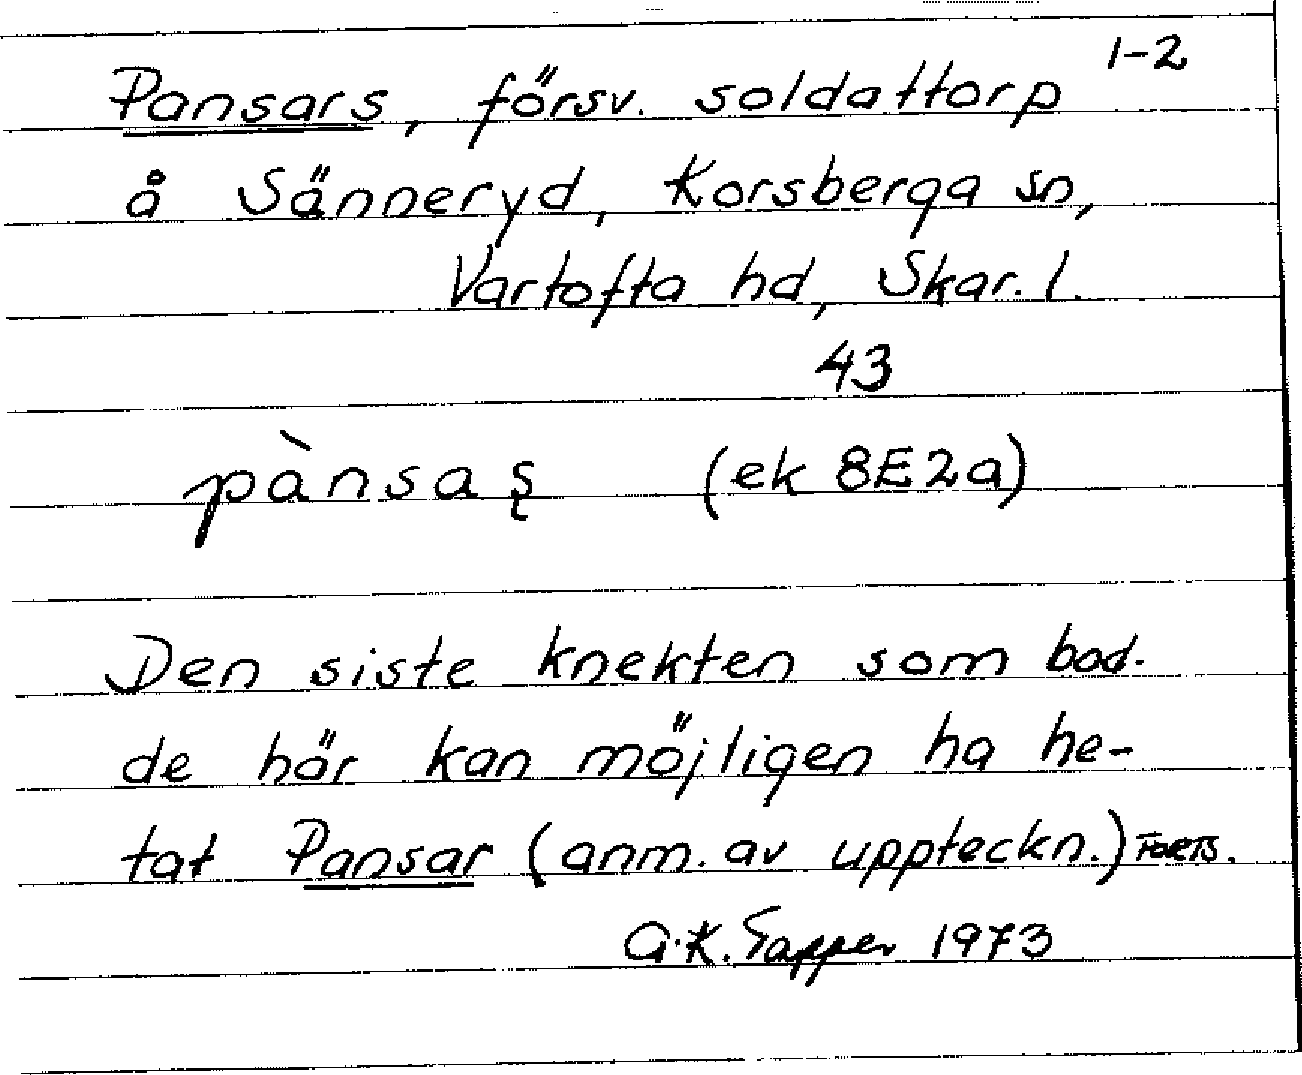 1-2
Pansars, försv. soldattorp
å Sänneryd, Korsberga sn,
Vartofta hd, Skar. l.
43
pànsaş (ek 8E2a)
Den siste knekten som bod-
de här kan möjligen ha he-
tat Pansar (anm. av uppteckn.) FORTS.
A.K. Tapper 1973